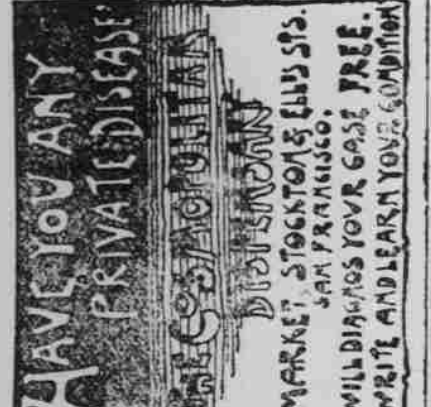 HAVE YOU ANY
PRIVATE DISEASE
COSMOPOLITAN
DISPENSARY
MARKET, STOCKTON & ELLIS STS.
SAN FRANCISCO.
WILL DIAGNOS YOUR CASE FREE.
WRITE AND LEARN YOUR CONDITION